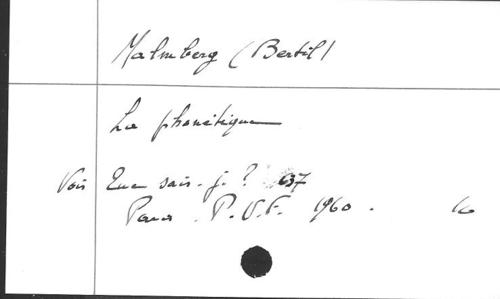 Malmberg (Bertil)
La phonétique
Voir Que sais-je ? 637
Paris. P.U.F. 1960. 16